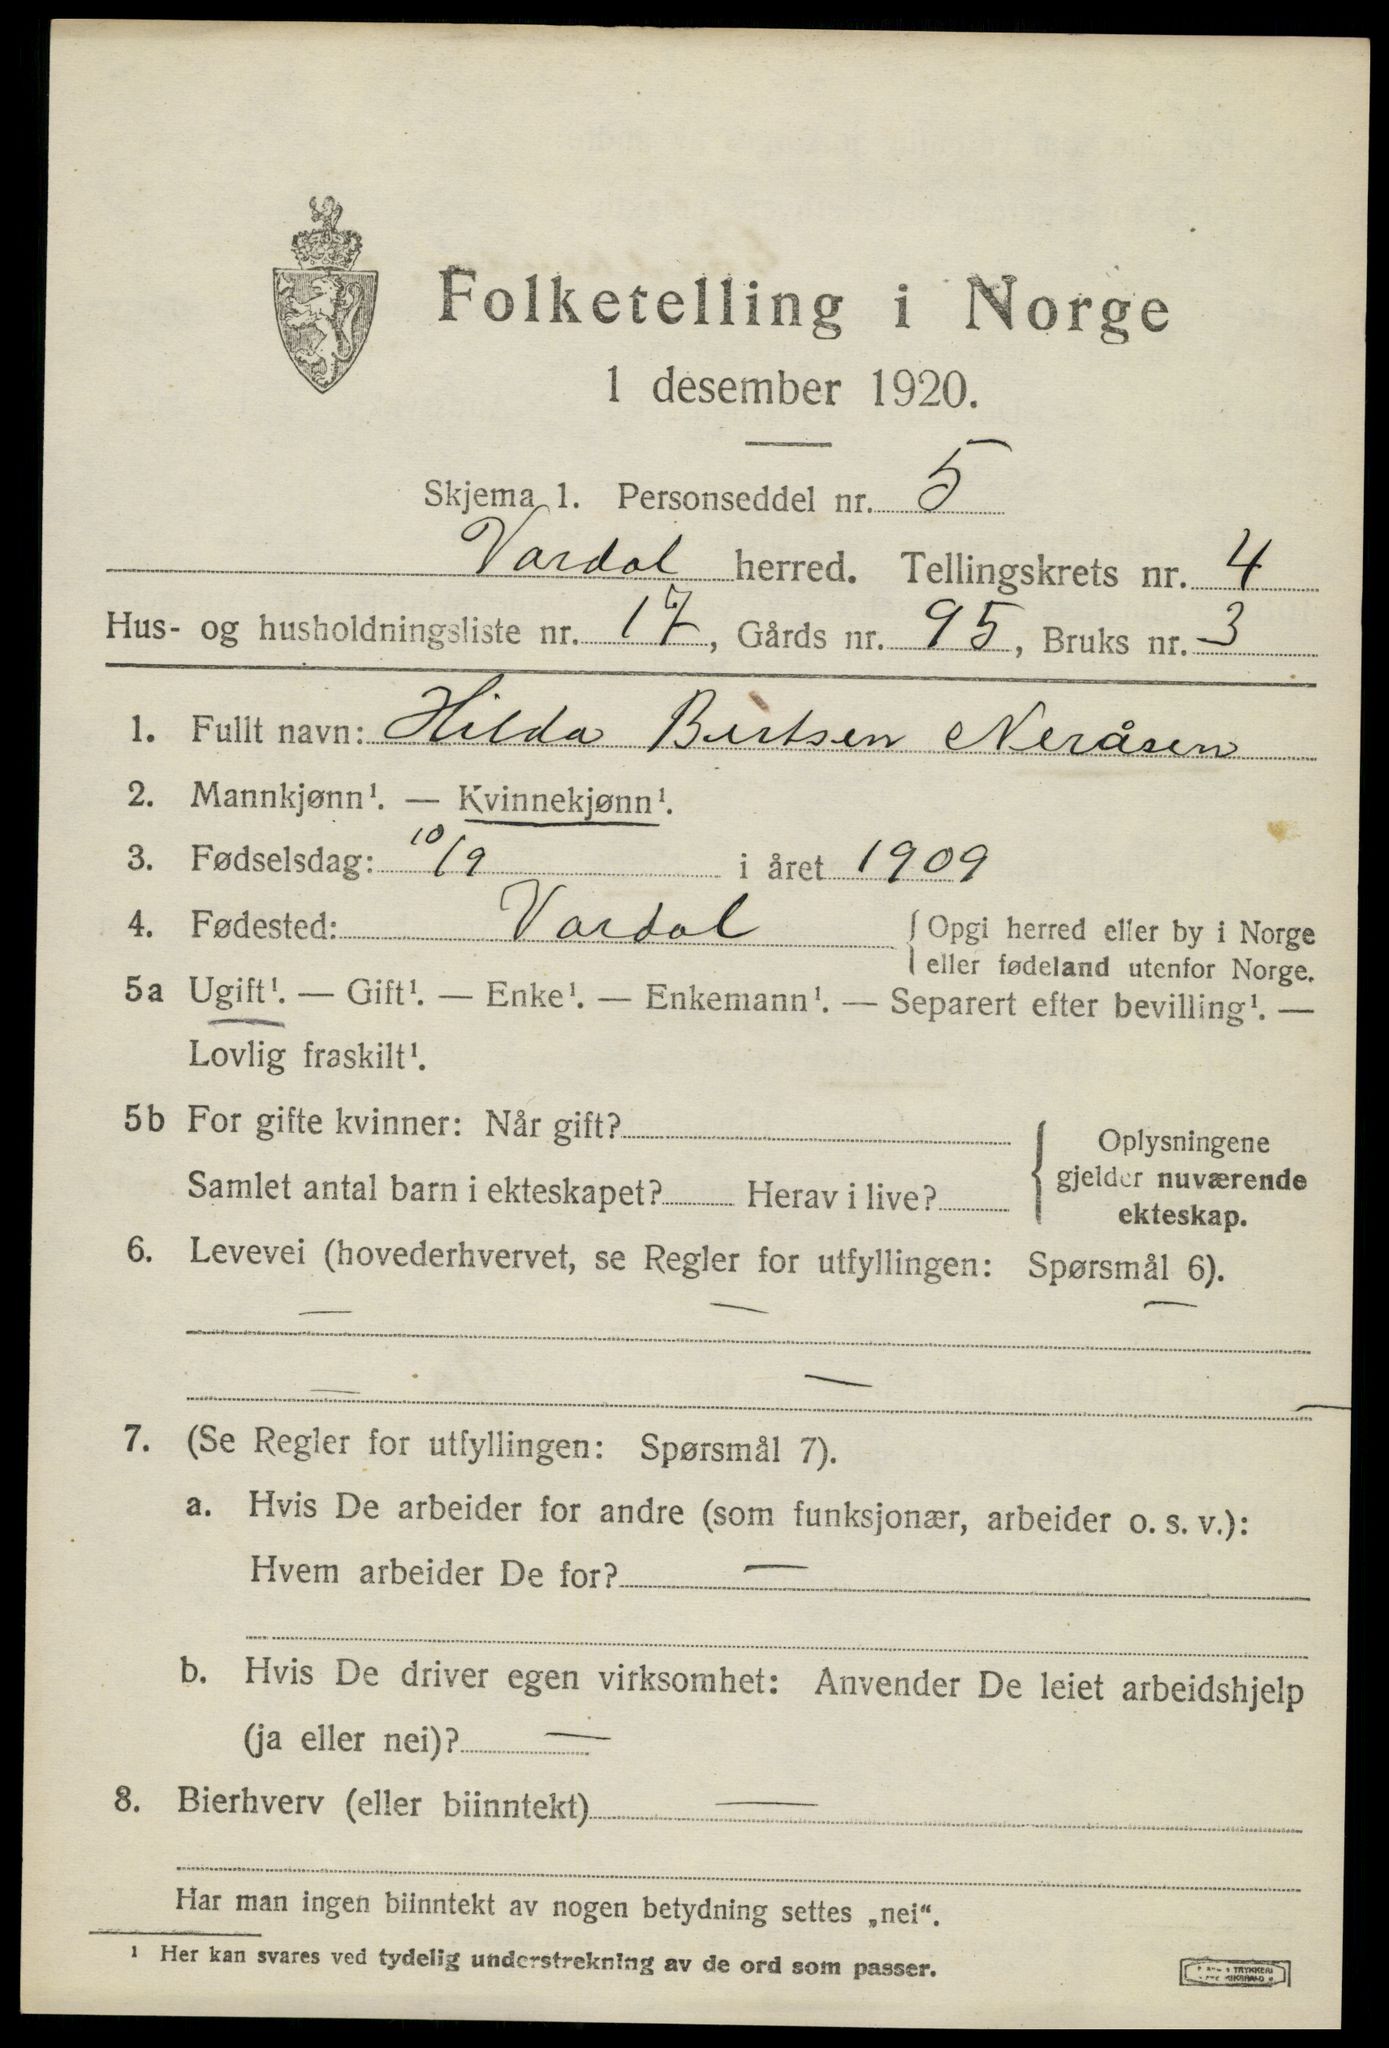 Folketelling i Norge
1 desember 1920.
Skjema 1. Personseddel nr. 5
Vardal herred. Tellingskrets nr. 4
Hus- og husholdningsliste nr. 17, Gårds nr. 95, Bruks nr. 3
1. Fullt navn: Hilda Bertsen Neråsen
2. Mannkjønn¹. — Kvinnekjønn¹.
3. Fødselsdag: 10/9 i året 1909
4. Fødested: Vardal { Opgi herred eller by i Norge
eller fødeland utenfor Norge.
5a Ugift¹. — Gift¹. — Enke¹. — Enkemann¹. — Separert efter bevilling¹. —
Lovlig fraskilt¹.
5b For gifte kvinner: Når gift?
Samlet antal barn i ekteskapet? Herav i live?
{ Oplysningene
gjelder nuværende
ekteskap.
6. Levevei (hovederhvervet, se Regler for utfyllingen: Spørsmål 6).
— — —
— — —
7. (Se Regler for utfyllingen: Spørsmål 7).
a. Hvis De arbeider for andre (som funksjonær, arbeider o. s. v.):
Hvem arbeider De for? —
b. Hvis De driver egen virksomhet: Anvender De leiet arbeidshjelp
(ja eller nei)? —
8. Bierhverv (eller biinntekt) —
Har man ingen biinntekt av nogen betydning settes „nei“.
¹ Her kan svares ved tydelig understrekning av de ord som passer.